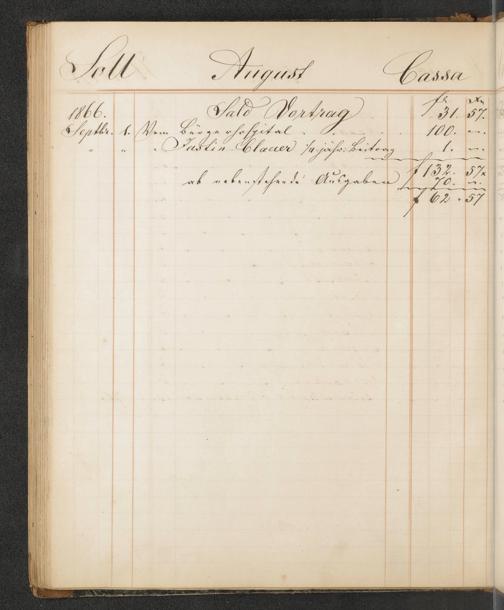 Soll August Cassa
fr. Xr
1866. Sald Vortrag f 31. 57.
Septbr. 1. Vom Bürgerhospital . . . 100. —.
" " . Justin Clauer 1/4 jähr. Beitrag 1. —.
f 132. 57.
ab nebenstehende Ausgaben 70. —.
f 62. 57